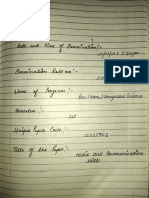 Date and Time of Examination:-
Examination Roll no:-
Name of Program:- Bsc (Hons) Computer Science
Semester:- 1st
Unique Paper Code:-
Title of the Paper:- media and Communication
skills